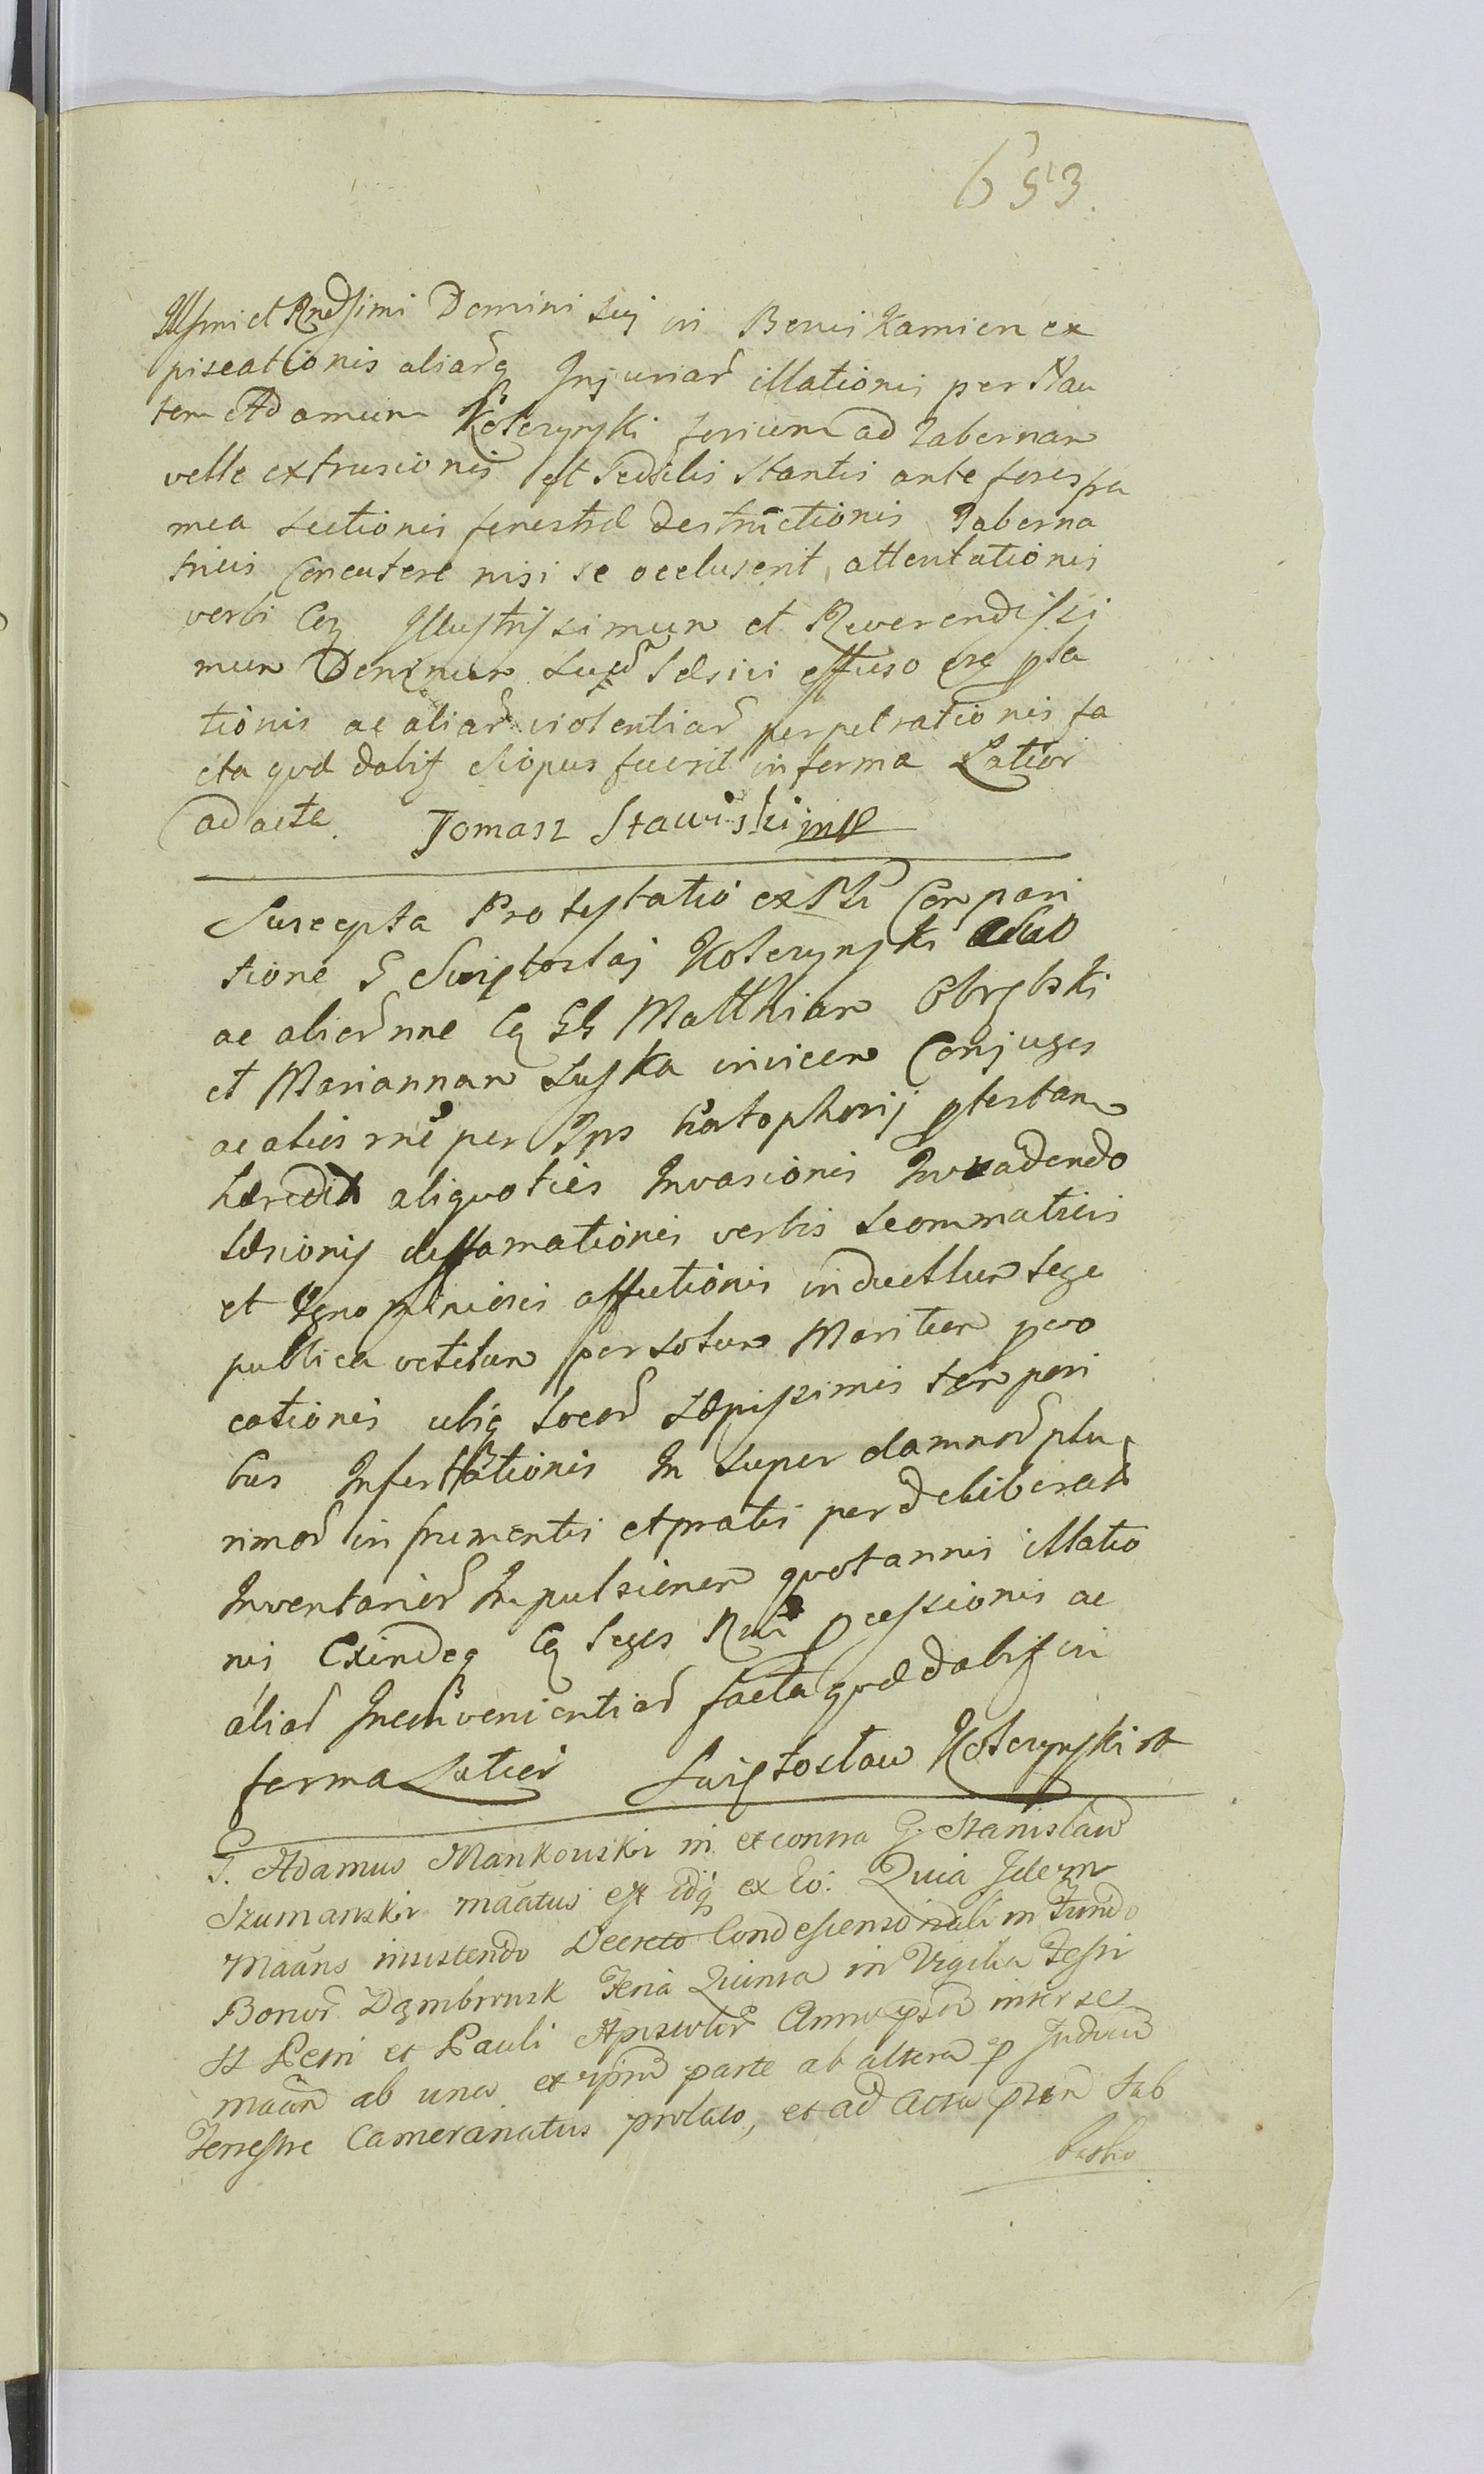 653.
Illsmi et Rndsimi Domini sui in Bonis Kamien ex
piscationis aliarq Injuriar illationis per Nau
tam Adamum Kolczynski forium ad Tabernam
velle extrusionis et sedilis stantis ante fores fra
mea sectionis fenestræ destructionis Taberna
tricis concutere nisi se occluserit, attentationis
verbi Coz Illustrissimum et Reverendissi
mum Denznum suum læsivi effuso ore pla
tionis ac aliar violentiar perpetrationis fa
cta qvæ dabit si opus fuerit in forma Latior
ad acta. Tomasz Stawiski mp
Suscepta Protestatio ex Pti Conpari
tione G Swiętoslai Kolczynski suo
ac alior nne Cq GG Matthiam Obrębski
et Mariannam Luska invicem Conjuges
ac aliis rne per Ips protestam
hæredit aliquoties Invasionis Invadendo
læsionis diffamationis verbis scommaticis
et Ignominiosis affectionis in duellum lege
publica vetitum per solum Maritum pvo
cationis ubiq locor sæpissimis tempori
bus Infestationis In super damnor plu
rimor in frumentis et pratis per deliberat
Inventarior Impulsionem quotannis illatio
nis Exindeq Cq leges Rni pcessionis ac
aliar Inconvenientiar facta qvæ dabit in
forma Latiori Swiętosław Kolczynski mp
G. Adamus Mankowski in et contra G. Stanislaum
Szumanski maatus est idq ex Eo: Quia Idem
Maans insistendo Decreto Condescensionali in Fundo
Bonor Dąmbrowsk Feria Quinta in Vigilia Festi
SS Petri et Pauli Apostolor Anno pso inter se
maan ab una et ipsum parte ab altera p Judicium
Terrestre Cameranatus prolato, et ad Acta psen sub